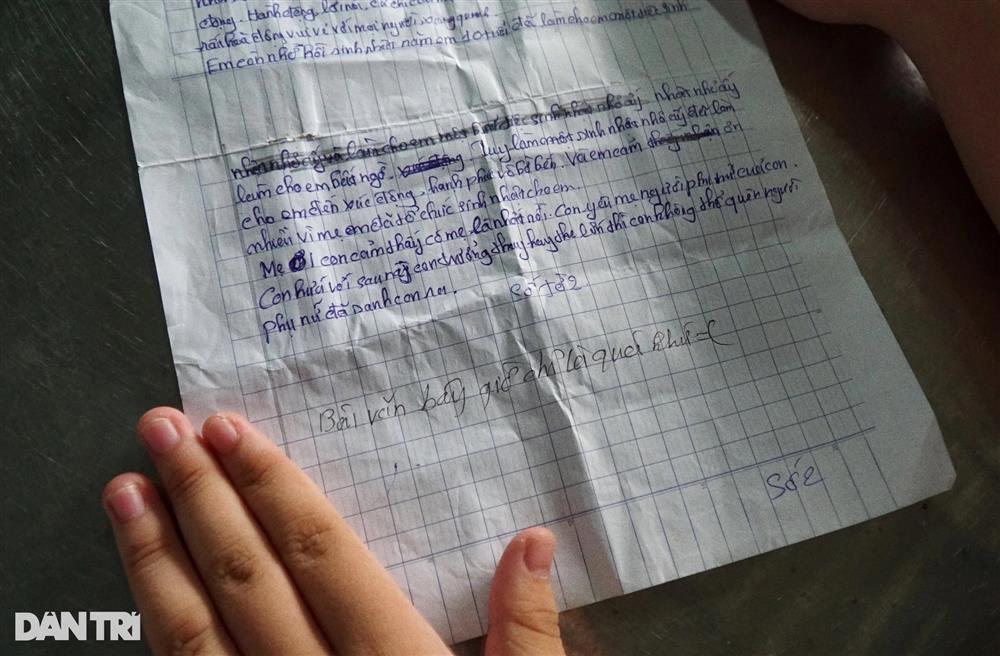 động. Hành động, lời nói, cử chỉ của
rất hoà đồng vui vẻ với mọi người xung quanh
Em còn nhớ hồi sinh nhật năm em 10 tuổi đã làm cho em một
nhỏ nhỏ ấy
làm cho em bất ngờ. Tuy là một sinh nhật nhỏ ấy đã làm
cho em đến xúc động, hạnh phúc vô bờ bến. Và em cảm ơn
nhiều vì mẹ em đã tổ chức sinh nhật cho em.
Mẹ ơi con cảm thấy có mẹ là nhất rồi. Con yêu mẹ người phụ nữ của con.
Con hứa với sau này con trưởng thay hay thế lớn thì con không thể quên người
phụ nữ đã sanh con ra.
Số tờ 2
Bài văn bây giờ chỉ là quá khứ =(
Số 2
DÂN TRÍ